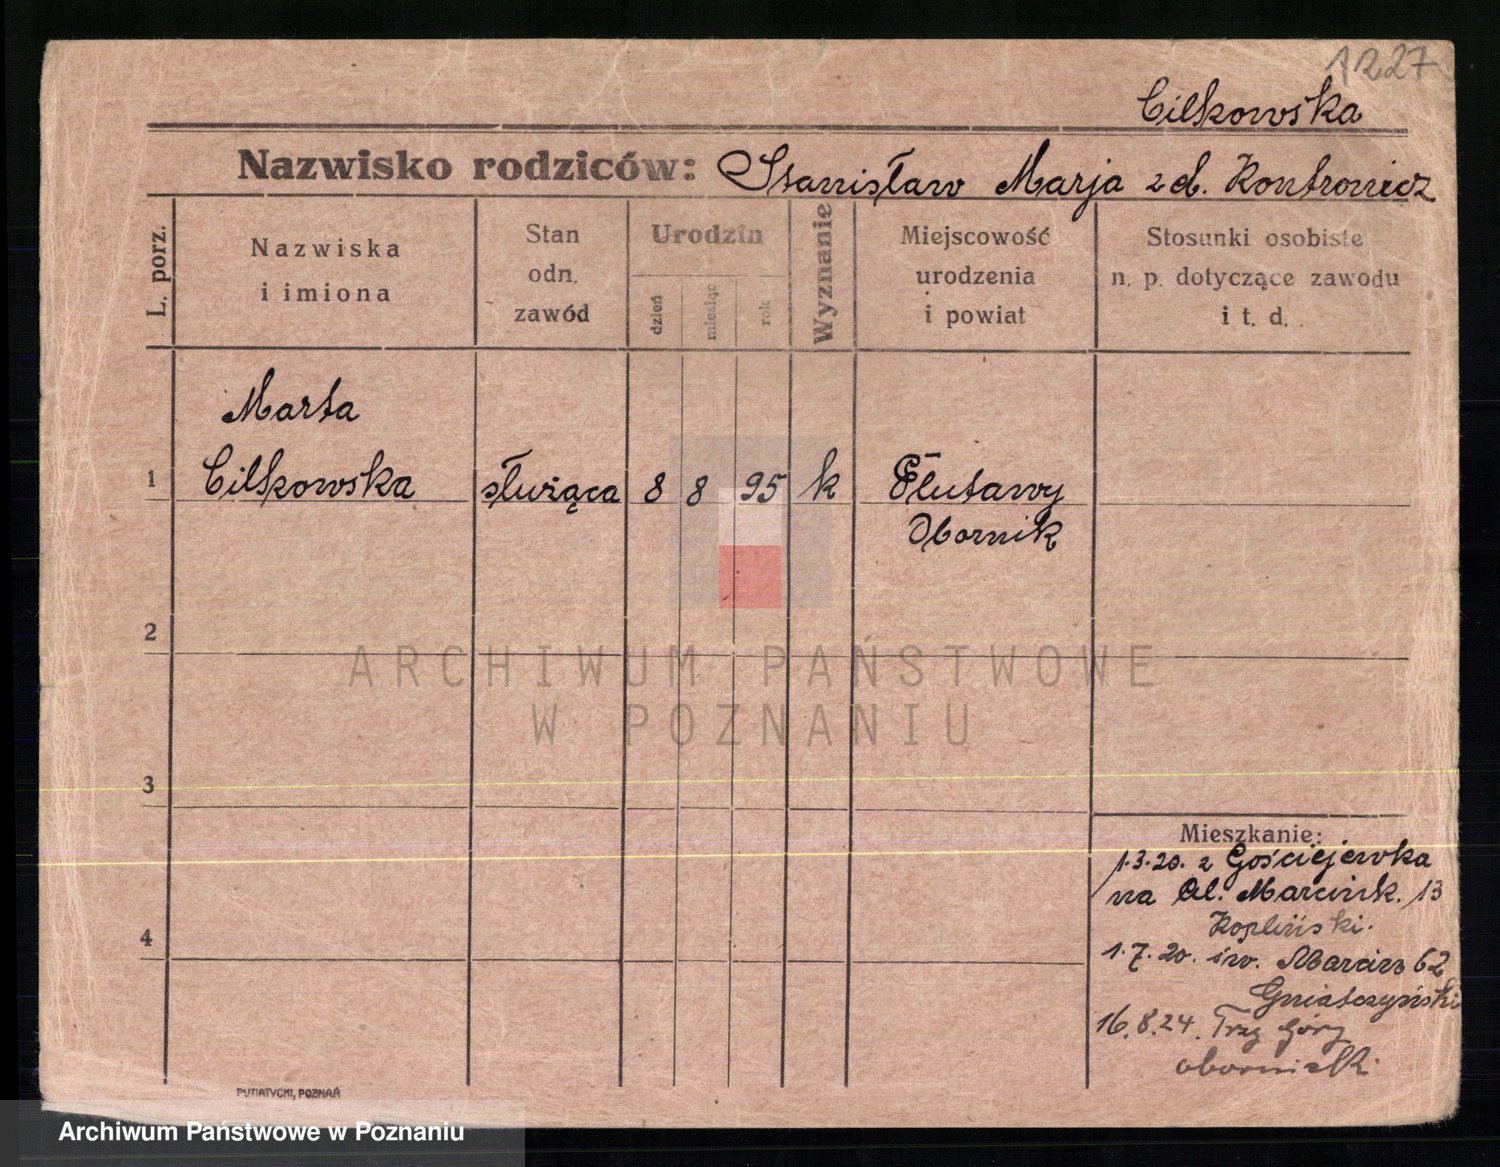 1227
Cilkowska
Nazwisko rodziców: Stanisław Marja z d. Kontrowicz
L. porz.
Nazwiska
i imiona
Stan
odn.
zawód
Urodzin
dzień
miesiąc
rok
Wyznanie
Miejscowość
urodzenia
i powiat
Stosunki osobiste
n. p. dotyczące zawodu
i t. d.
Marta
1 Cilkowska służąca 8 8 95 k
Obornik
2
ARCHIWUM PAŃSTWOWE
W POZNANIU
3
Mieszkanie:
1.3.20. z Gościejewka
na Al. Marcink. 13
Kopliński.
4
1.7.20. św. Marcin 62
Gniatczyński
16.8.24. Trzy Góry
obornicki
PUTIATYCKI, POZNAŃ
Archiwum Państwowe w Poznaniu